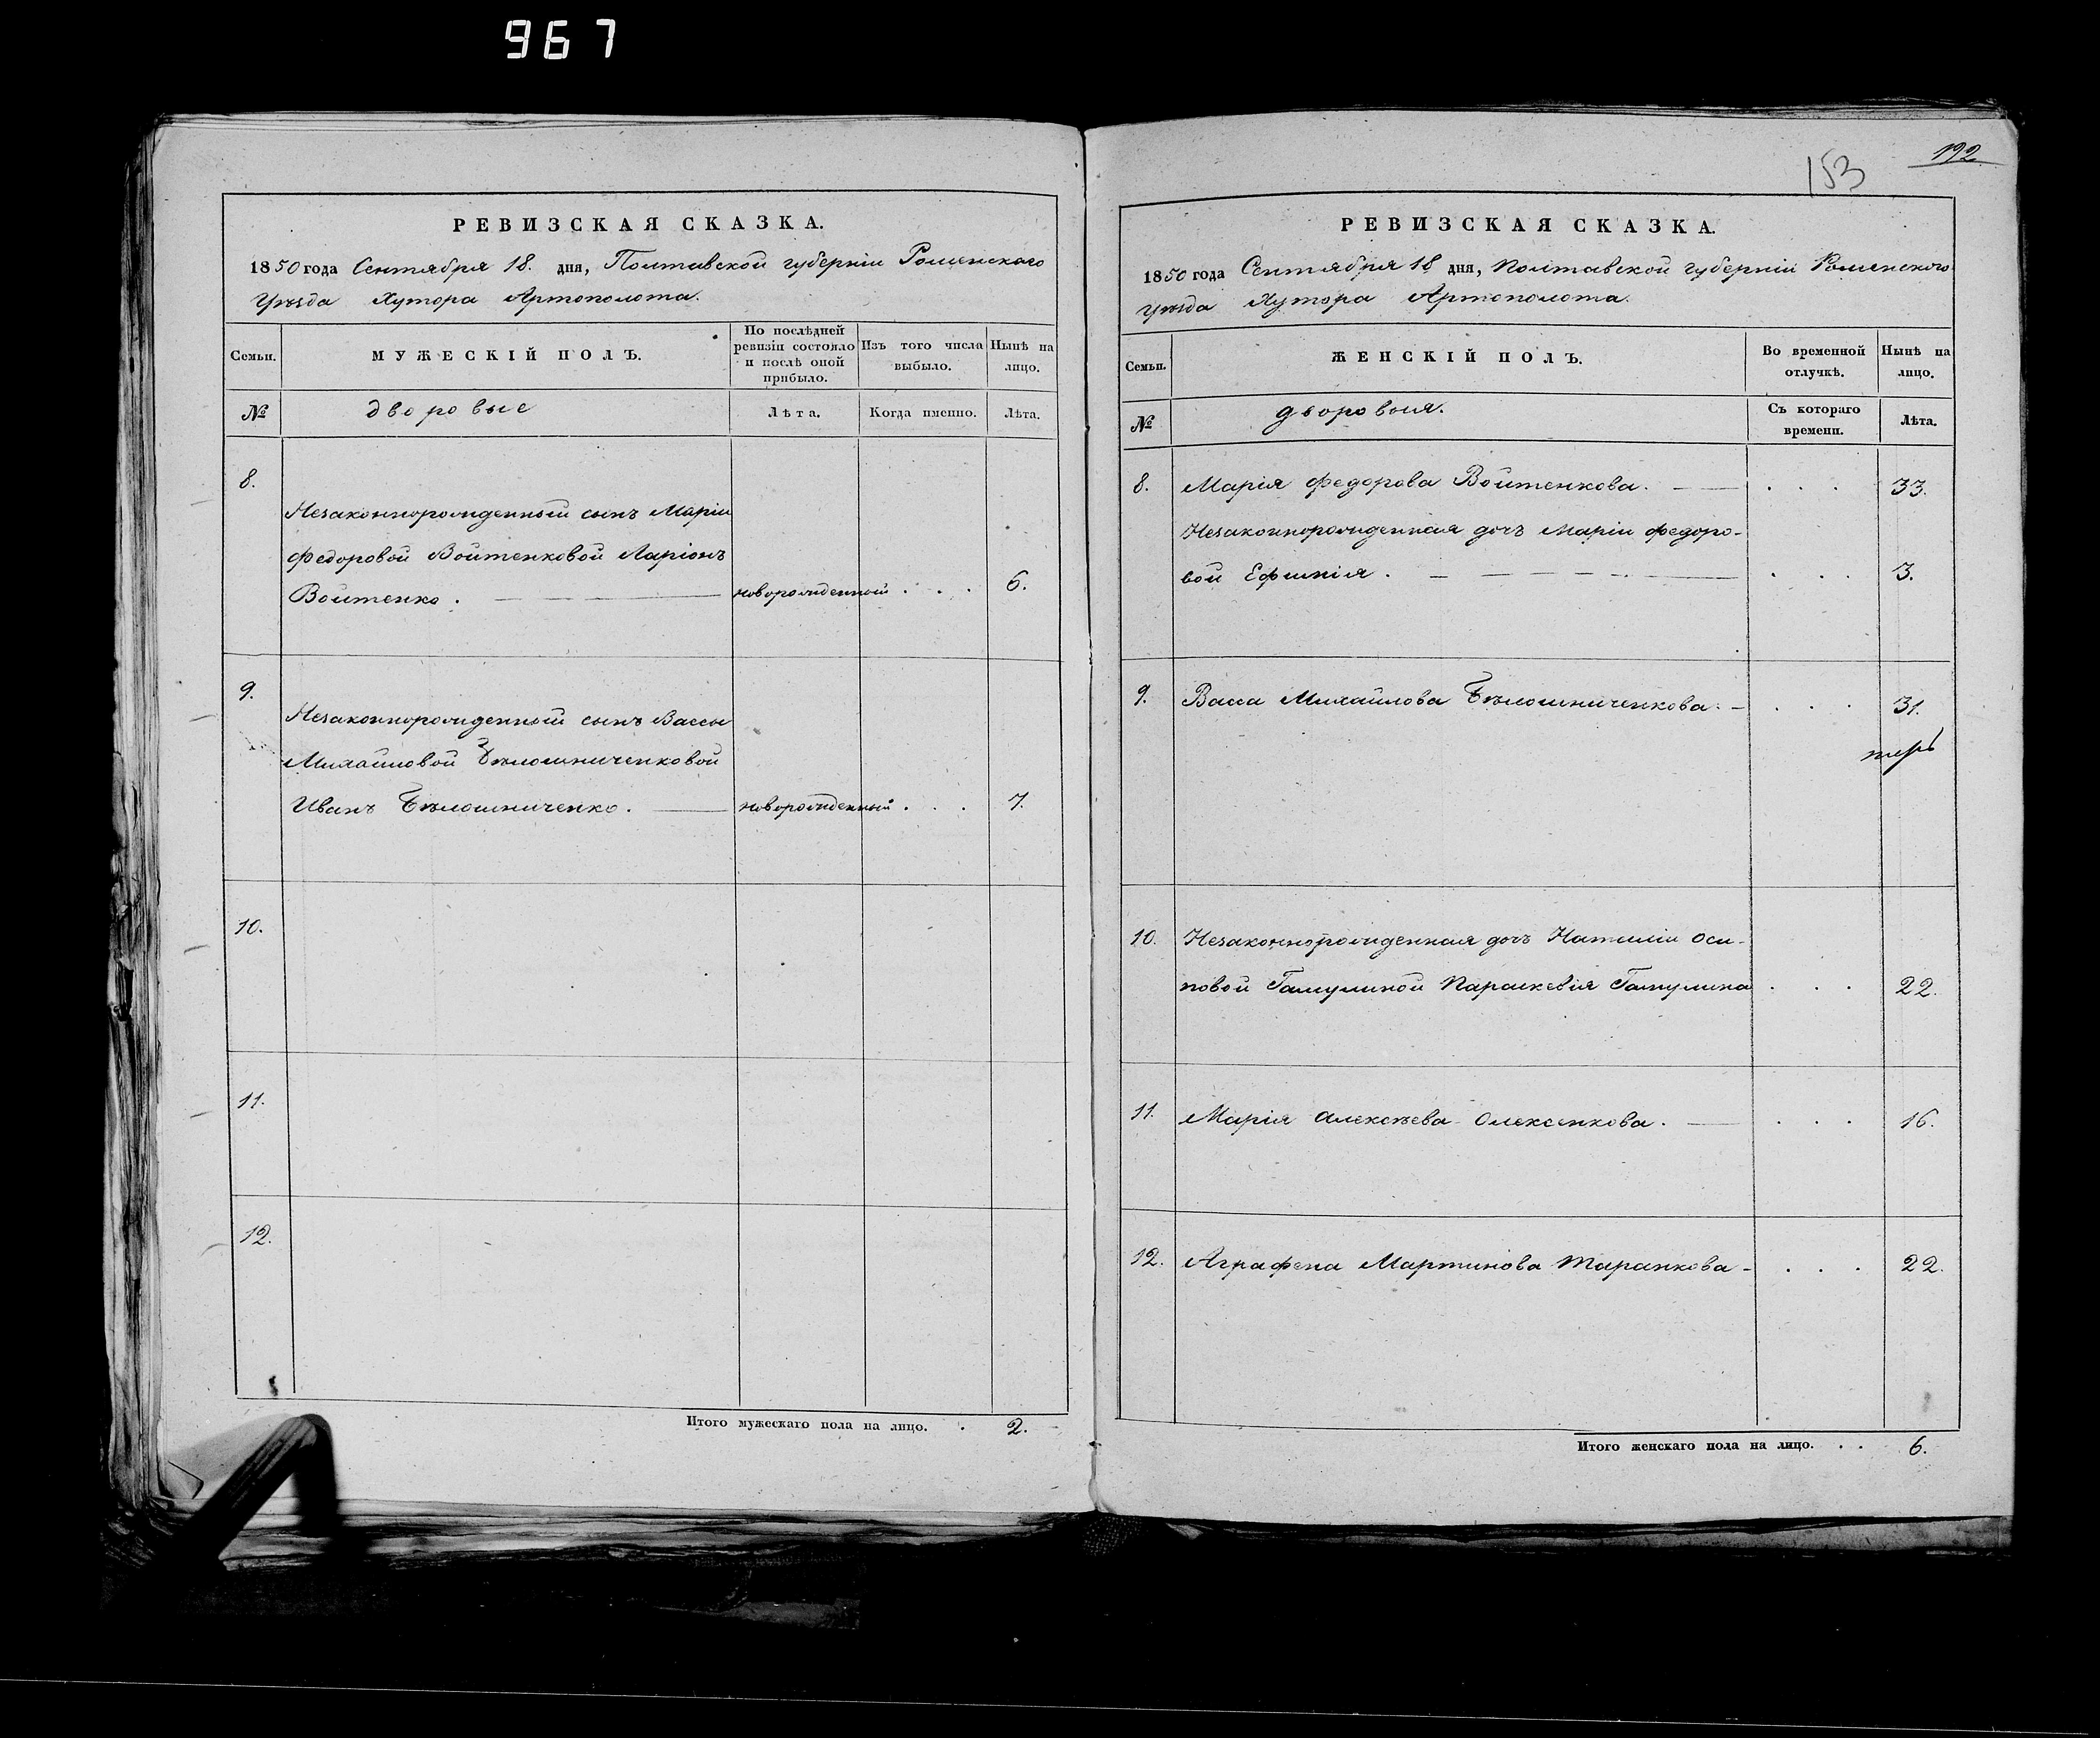 967
РЕВИЗСКАЯ СКАЗКА.
1850 года Сентября 18. дня, Полтавской губерніи Роменскаго
уѣзда Хутора Артополота.
Семьи.
МУЖЕСКІЙ ПОЛЪ.
По послѣдней ревизіи состояло и послѣ оной прибыло.
Изъ того числа выбыло.
Нынѣ на лицо.
№
дворовые
Лѣта.
Когда именно.
Лѣта.
8.
Незаконнорожденный сынъ Маріи
Федоровой Войтенковой Ларіонъ
Войтенко. новорожденный . . . 6.
9.
Незаконнорожденный сынъ Вассы
Михайловой Бѣлошниченковой
Иванъ Бѣлошниченко. новорожденный . . . 7.
10.
11.
12.
Итого мужескаго пола на лицо. . 2.
192
153
РЕВИЗСКАЯ СКАЗКА.
1850 года Сентября 18 дня, Полтавской губерніи Роменскаго
уѣзда Хутора Артополота.
Семьи.
ЖЕНСКІЙ ПОЛЪ.
Во временной отлучкѣ.
Нынѣ на лицо.
№
дворовыя.
Съ котораго времени.
Лѣта.
8. Марія Федорова Войтенкова. . . . 33.
Незаконнорожденная дочь Маріи Федоро-
вой Ефимія. . . . 3.
9. Васса Михайлова Бѣлошниченкова. . . . 31.
10. Незаконнорожденная дочь Наталіи Оси-
повой Гамулиной Параскевія Гамулина . . . 22.
11. Марія Алексѣева Олексенкова. . . . 16.
12. Аграфена Мартинова Таранкова . . . 22.
Итого женскаго пола на лицо. . . 6.